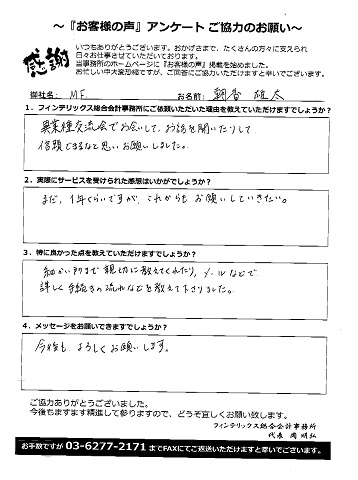 ～『お客様の声』アンケート ご協力のお願い～
感謝
いつもありがとうございます。おかげさまで、たくさんの方々に支えられ
日々お仕事させていただいております。
当事務所のホームページに『お客様の声』掲載を始めました。
お忙しい中大変恐縮ですが、ご回答にご協力いただけますと幸いでございます。
御社名: MF お名前: 朝香 雄太
1．フィンテリックス総合会計事務所にご依頼いただいた理由を教えていただけますでしょうか？
異業種交流会でお会いして、お話を聞いたりして
信頼できるなと思いお願いしました。
2．実際にサービスを受けられた感想はいかがでしょうか？
まだ、1年くらいですが、これからもお願いしていきたい。
3．特に良かった点を教えていただけますでしょうか？
細かい所まで親切に教えてくれたり、メールなどで
詳しく手続きの流れなどを教えて下さりました。
4．メッセージをお願いできますでしょうか？
今後も、よろしくお願いします。
ご協力ありがとうございました。
今後もますます精進して参りますので、どうぞ宜しくお願い致します。
フィンテリックス総合会計事務所
代表 岡 明弘
お手数ですが 03-6277-2171 までFAXにてご返送いただけますと幸いでございます。